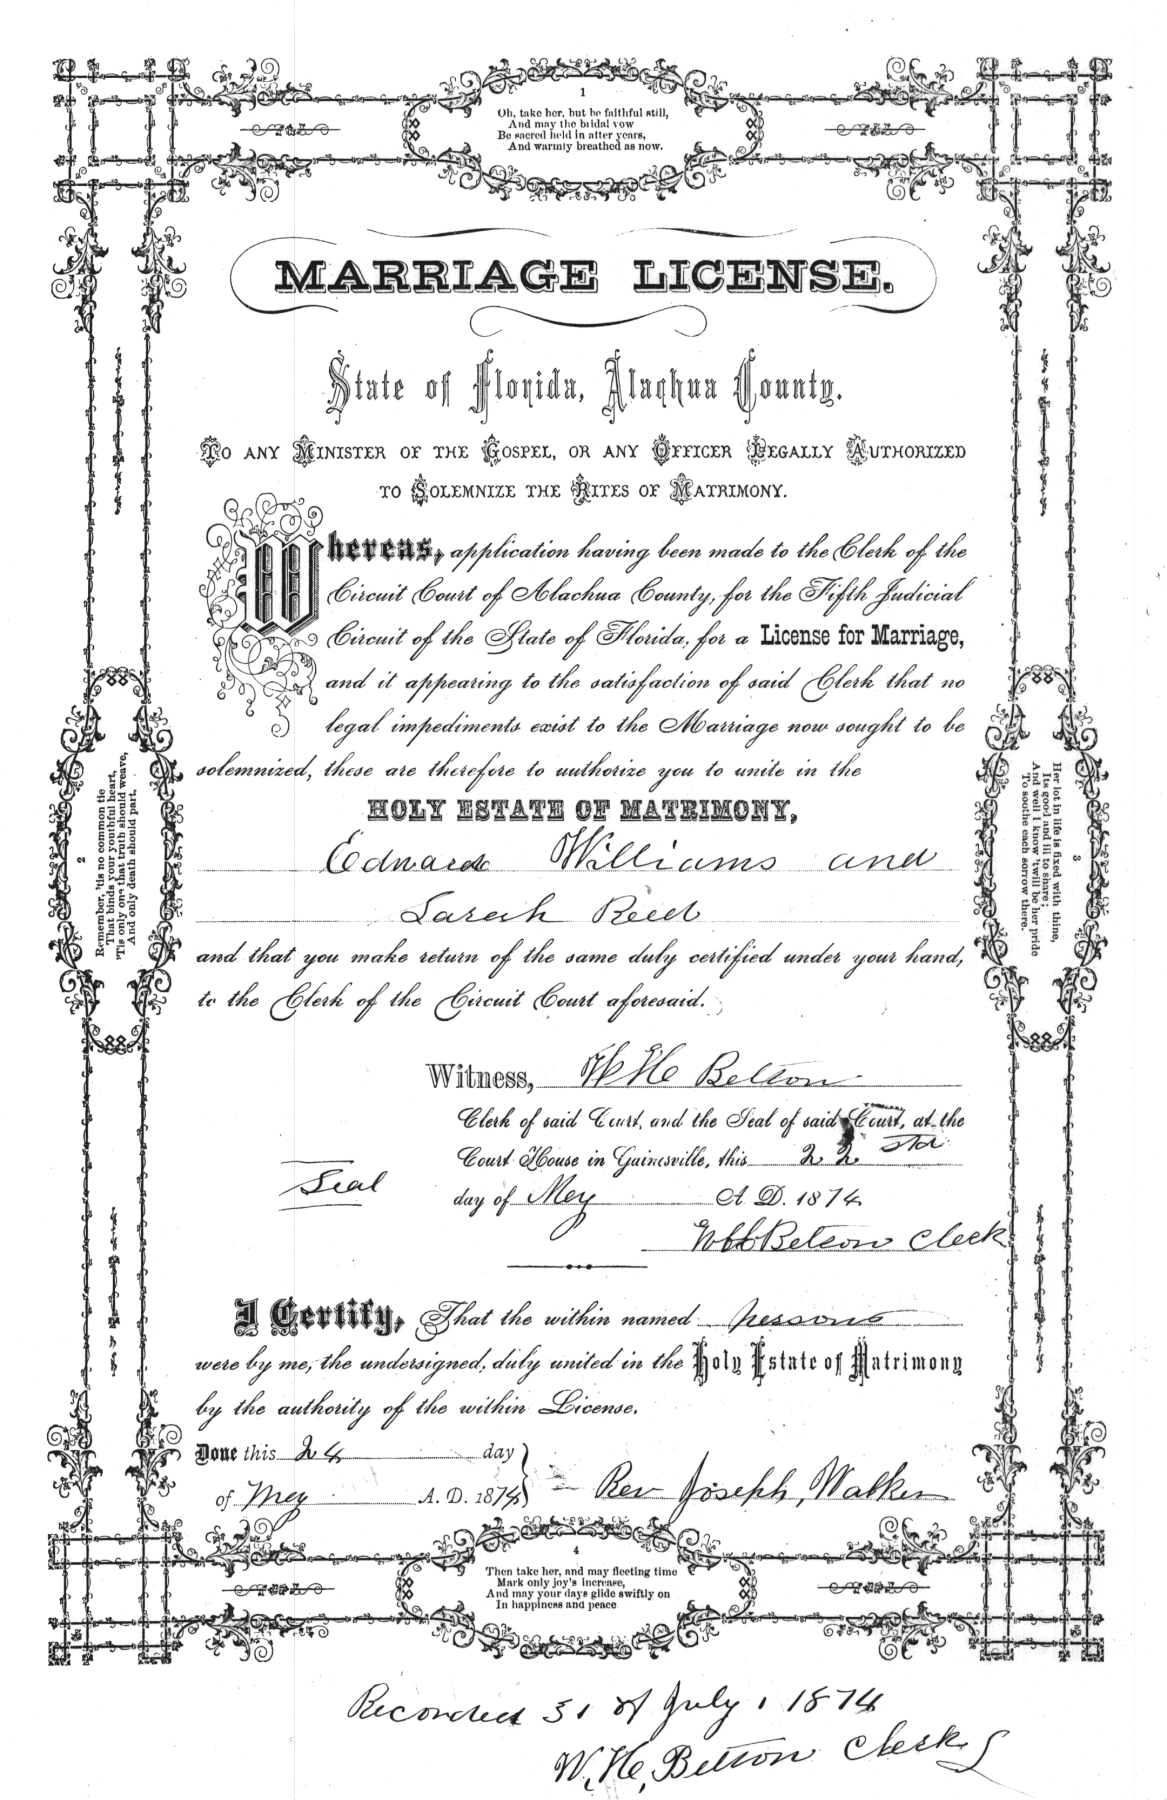 1
Oh, take her, but be faithful still,
And may the bridal vow
Be sacred held in after years,
And warmly breathed as now.
MARRIAGE LICENSE.
State of Florida, Alachua County.
To any Minister of the Gospel, or any Officer Legally Authorized
to Solemnize the Rites of Matrimony.
Whereas, application having been made to the Clerk of the
Circuit Court of Alachua County, for the Fifth Judicial
Circuit of the State of Florida, for a License for Marriage,
and it appearing to the satisfaction of said Clerk that no
legal impediments exist to the Marriage now sought to be
solemnized, these are therefore to authorize you to unite in the
HOLY ESTATE OF MATRIMONY,
Edward Williams and
Sarah Reed
and that you make return of the same duly certified under your hand,
to the Clerk of the Circuit Court aforesaid.
Witness, W H Belton
Clerk of said Court, and the Seal of said Court, at the
Court House in Gainesville, this 22
Seal
day of May A. D. 1874
W H Belton Clerk
I Certify, That the within named persons
were by me, the undersigned, duly united in the Holy Estate of Matrimony
by the authority of the within License.
Done this 24 day
of May A. D. 1874 } Rev Joseph, Walker
2
Remember, 'tis no common tie
That binds your youthful heart,
'Tis only one that truth should weave,
And only death should part.
3
Her lot in life is fixed with thine,
Its good and ill to share;
And well I know 'twill be her pride
To soothe each sorrow there.
4
Then take her, and may fleeting time
Mark only joy's increase,
And may your days glide swiftly on
In happiness and peace
Recorded 31 of July, 1874
W. H. Belton Clerk